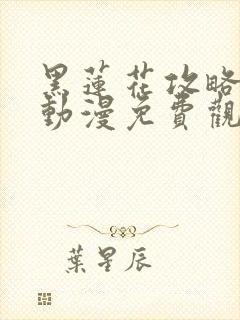 黑蓮花攻略
動漫免費觀
葉星辰